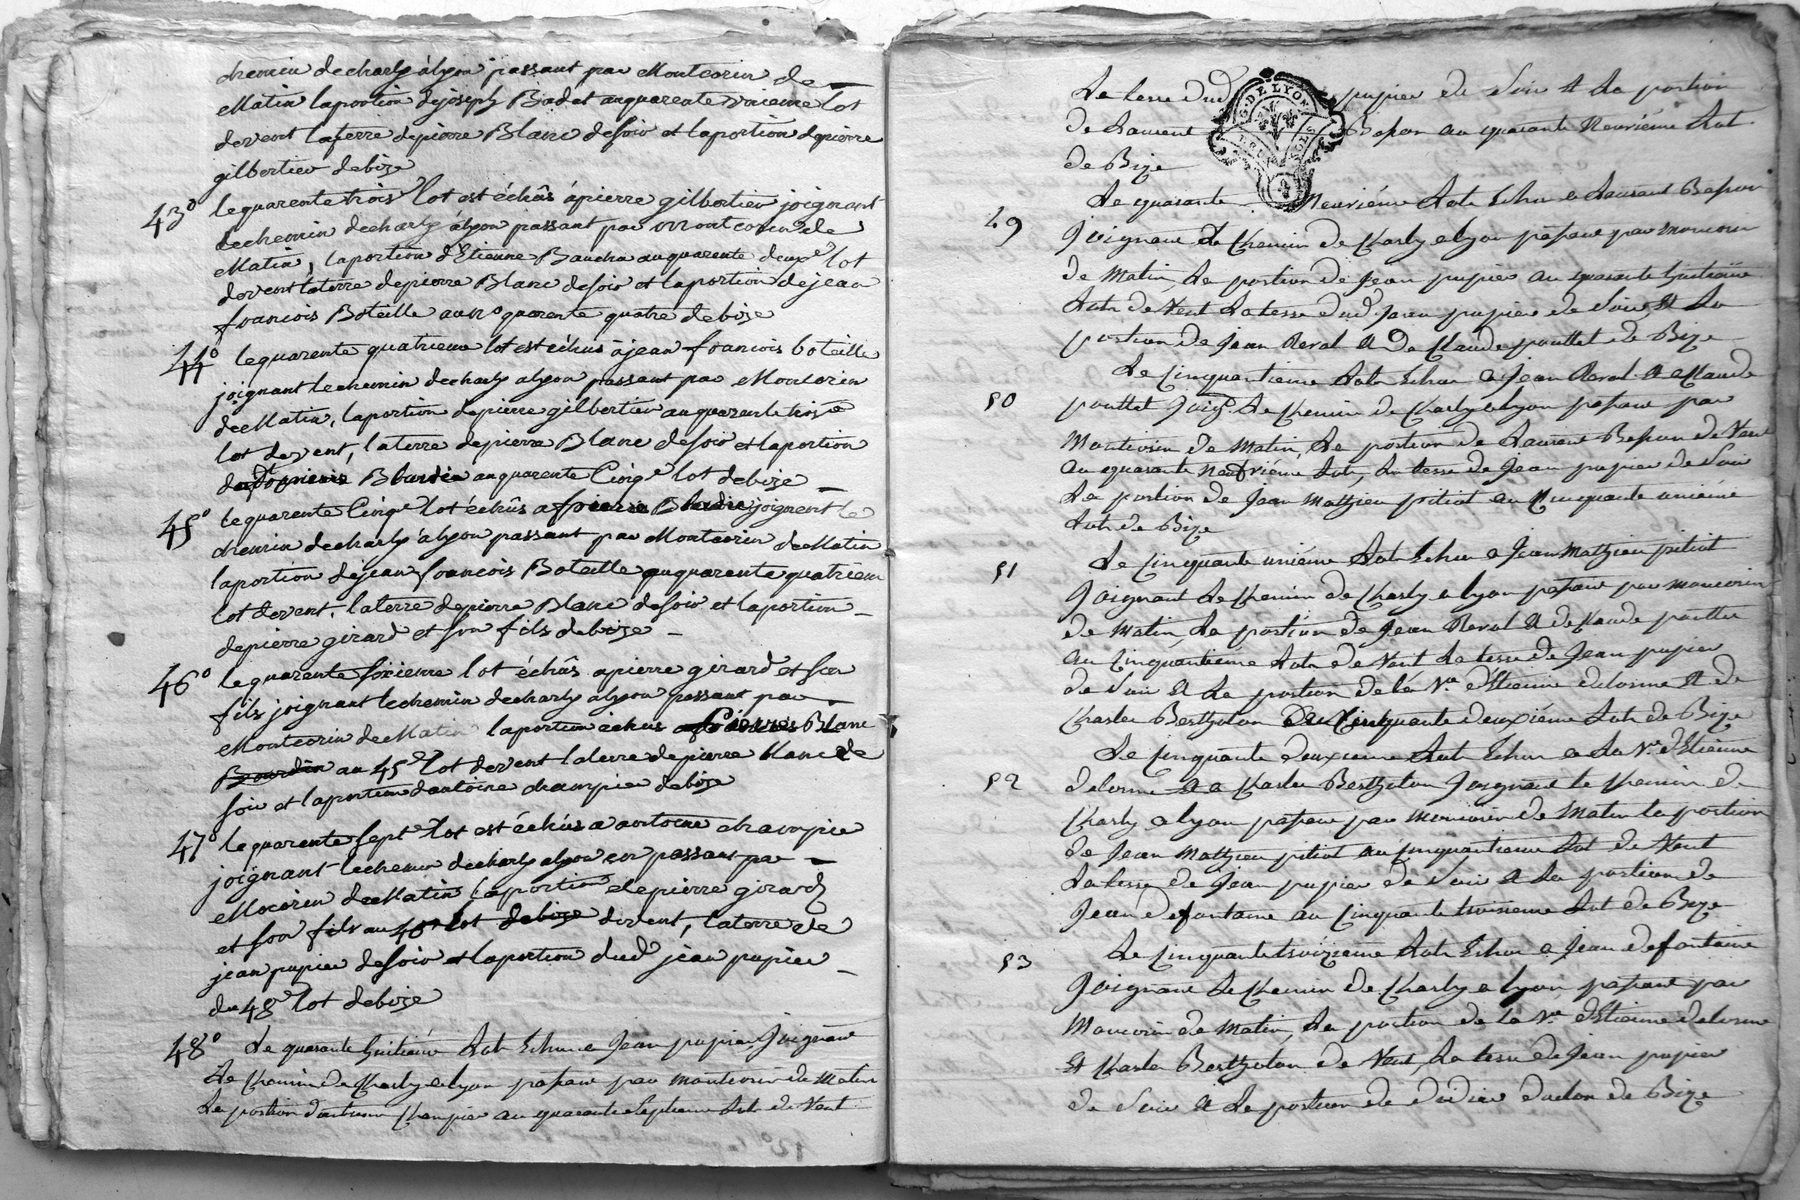 chemin decharly àlyon passant par Montcorin de
Matin laportion dejoseph Badet auquarente unieme lot
devent laterre depierre Blanc desoir et laportion depierre
gilbertier debize
43° lequarente trois lot est échûs àpierre gilbertier joignant
lechemin decharly àlyon passant par Montcorin de
Matin, laportion d'Etienne Baucha auquarente deuxe lot
devent laterre depierre Blanc desoir et laportion dejean
francois Boteille aun° quarente quatre debize
44° lequarente quatrieme lot est échus àjean francois boteille
joignant lechemin decharly alyon passant par Montcorin
deMatin, laportion depierre gilbertier auquarente troise
lot devent, laterre depierre Blanc desoir et laportion
Bourdin auquarente Cinqe lot debize
45° lequarente Cinqe lot échûs a pierre Bourdin joignent le
chemin decharly àlyon passant par Montcorin deMatin
laportion dejean francois Boteille auquarente quatrieme
lot devent, laterre depierre Blanc desoir et laportion
depierre girard et son fils debize
46° lequarente sixieme lot échûs apierre girard et son
fils joignant lechemin decharly alyon passant par
Montcorin deMatin laportion échus Blanc
Bourdin au 45e lot devent laterre depierre blanc de
soir et laportion dantoine champier debize
47° lequarente septe lot est échûs a antoine champier
joignant lechemin decharly alyon passant par
Mocorin deMatin laportion depierre girard
et son fils au 46e lot debize devent, laterre de
jean pupier desoir et laportion dud jean pupier
du 48e lot debize
48° Le quarante huitiéme Lot Echu a Jean pupier Joignant
Le Chemin de Charly a lyon passant par montcorin de Matin
La portion dantoine Champier au quarante Septieme Lot de Vent
La terre dud pupier de Soir et La portion
de Laurent Besson au quarante Neuviéme Lot
de Bize
Le quarante Neuviéme Lot Echu a Laurent Besson
49 Joignant Le Chemin de Charly a lyon passant par moncorin
de Matin, La portion de Jean pupier au quarante huitiéme
Lot de Vent La terre dud Jean pupier de Soir et La
portion de Jean Reval et de Claude pouttet de Bize
Le Cinquantieme Lot Echu a Jean Reval et a Claude
50 pouttet Joigt Le Chemin de Charly a lyon passant par
Montcorin de Matin, La portion de Laurent Besson de Vent
au quarante Neufviéme Lot, La terre de Jean pupier de Soir
La portion de Jean Mathieu pitiot au Cinquante uniéme
Lot de Bize
Le Cinquante uniéme Lot Echu a Jean Mathieu pitiot
51 Joignant Le Chemin de Charly a lyon passant par moncorin
de Matin, La portion de Jean Reval et de Claude pouttet
au Cinquantieme Lot de Vent La terre de Jean pupier
de Soir et La portion de la Ve d'Etienne delorme et de
Charles Bertholon au Cinquante deuxiéme Lot de Bize
Le Cinquante deuxieme Lot Echu a La Ve d'Etienne
52 delorme et a Charles Bertholon Joignant le Chemin de
Charly a lyon passant par moncorin de Matin la portion
de Jean Mathieu pitiot au Cinquantieme Lot de Vent
La terre de Jean pupier de Soir et La portion de
Jean defontaine au Cinquante troisieme Lot de Bize
Le Cinquante troizieme Lot Echu a Jean defontaine
53 Joignant Le Chemin de Charly a lyon passant par
Moncorin de Matin, La portion de la Ve d'Etienne delorme
et Charles Bertholon de Vent, La terre de Jean pupier
de Soir et La portion de de Bize
G. DE LYON